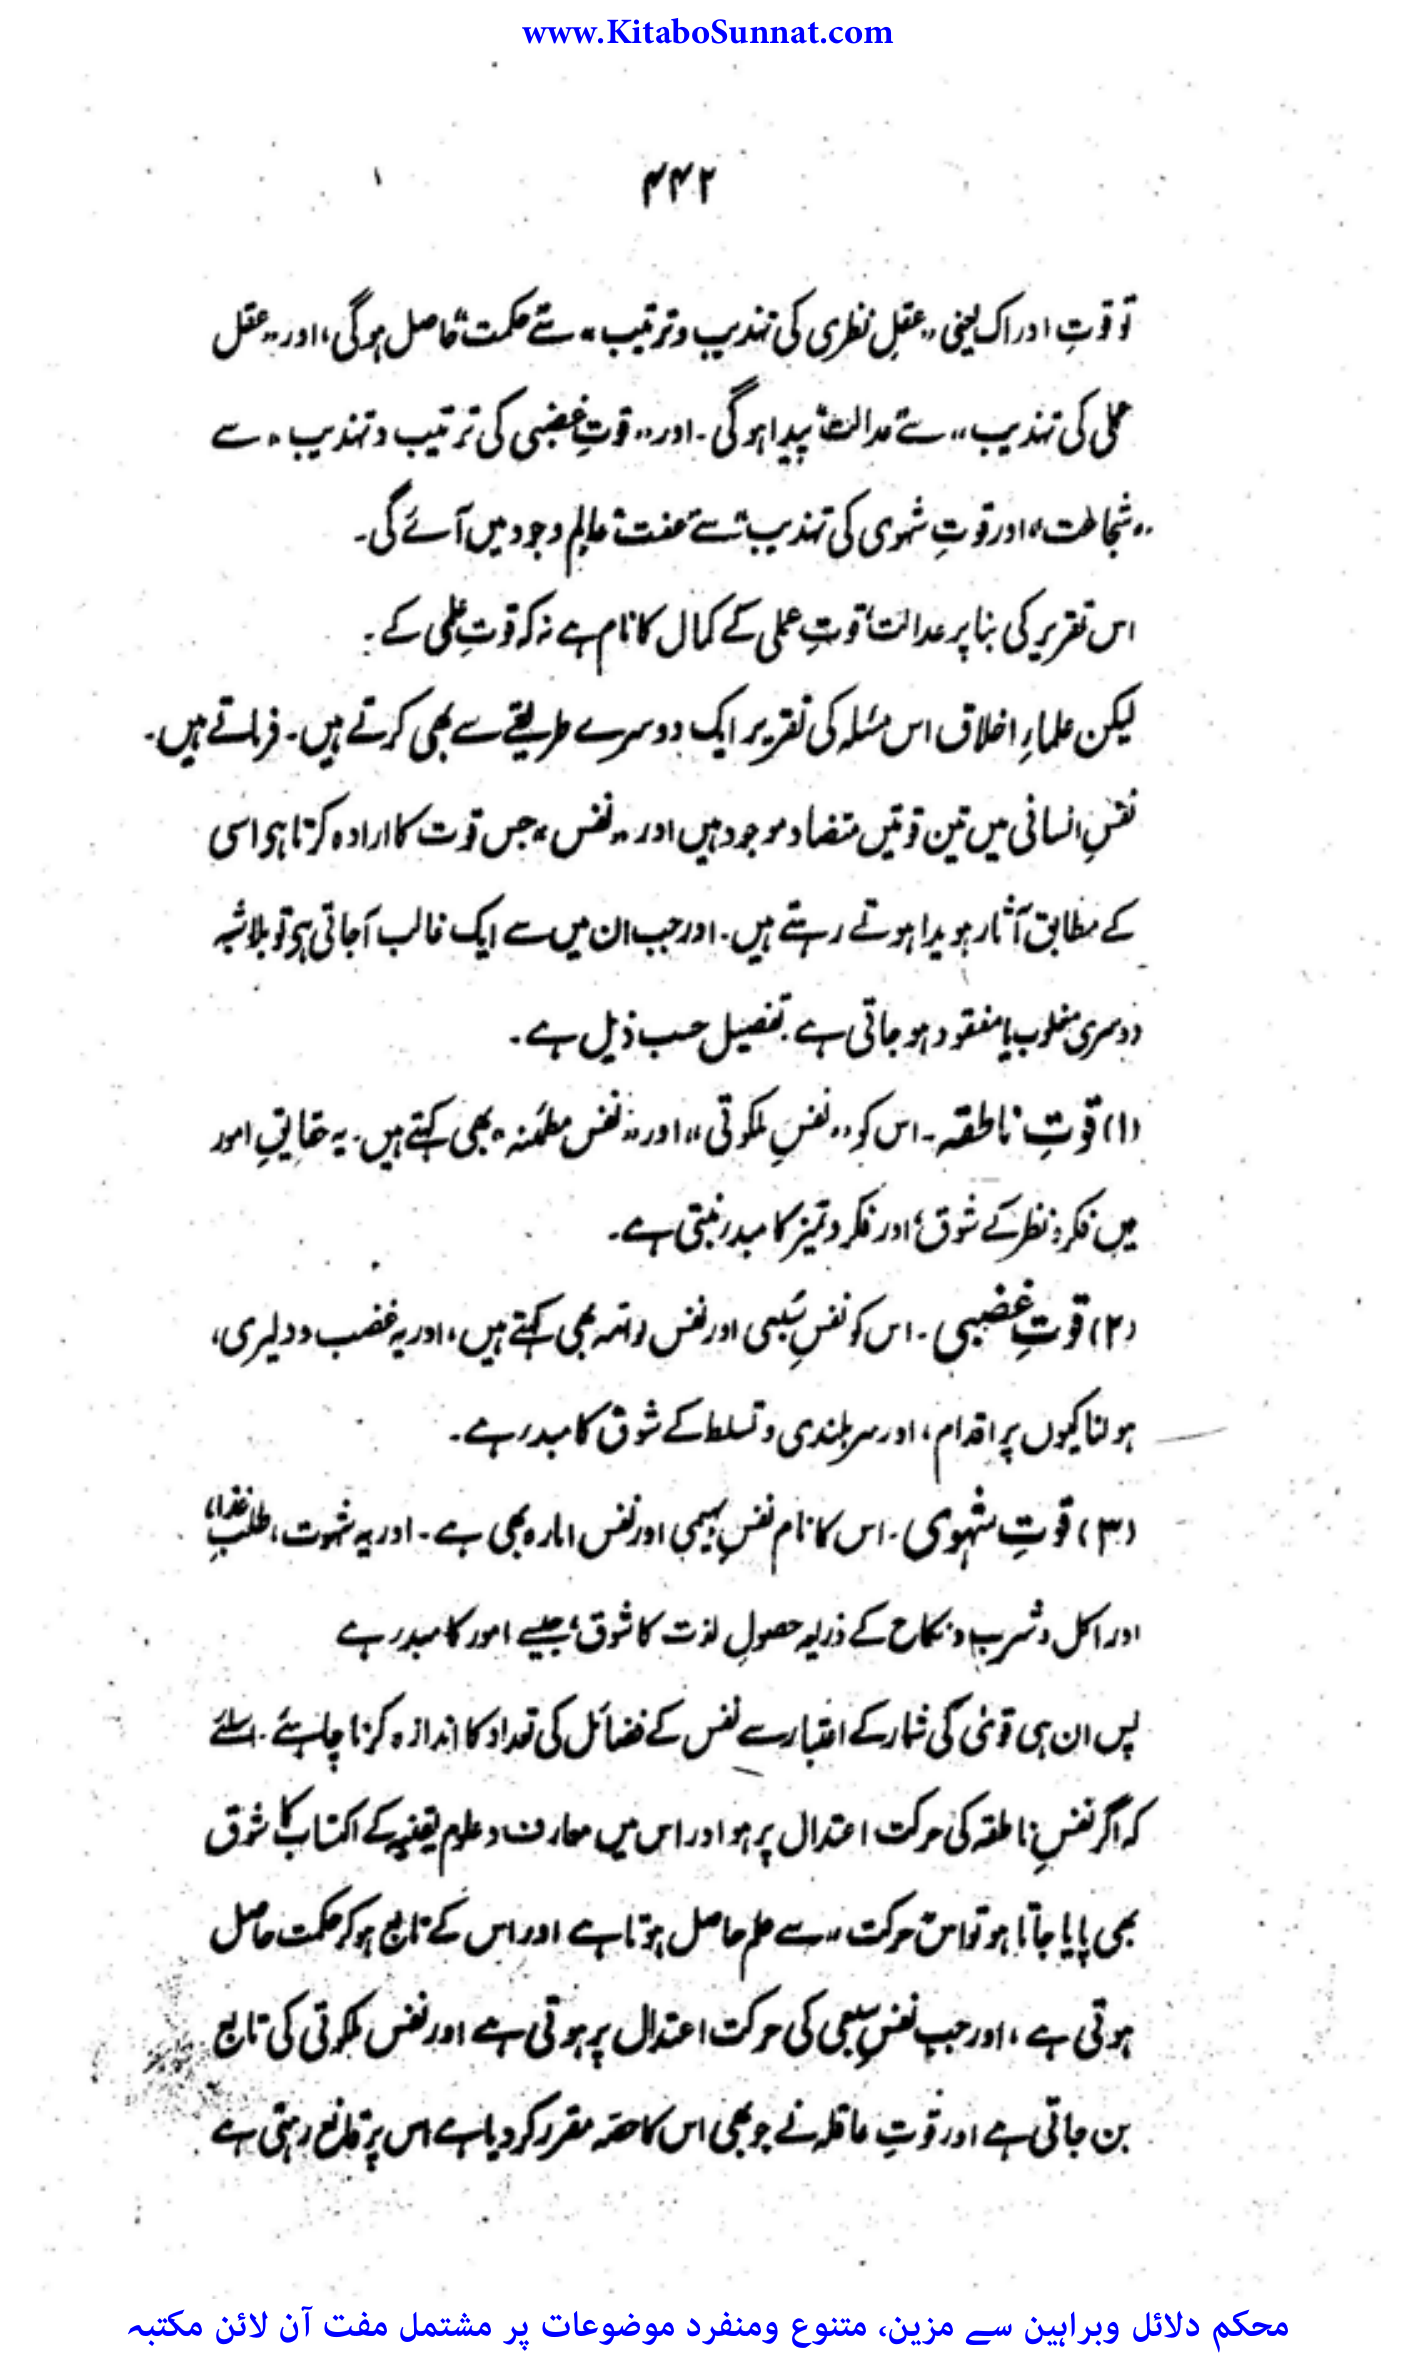 www.KitaboSunnat.com
۴۴۲
تو قوتِ ادراک یعنی ”عقلِ نظری کی تہذیب و ترتیب“ سے ”حکمت“ حاصل ہوگی، اور ”عقل
عملی کی تہذیب“ سے ”عدالت“ پیدا ہوگی۔ اور ”قوتِ غضبی کی ترتیب و تہذیب“ سے
”شجاعت“ اور قوتِ شہوی کی تہذیب“ سے ”عفت“ عالمِ وجود میں آئے گی۔
اس تقریر کی بنا پر عدالت، قوتِ عملی کے کمال کا نام ہے نہ کہ قوتِ علمی کے۔
لیکن علماءِ اخلاق اس مسئلہ کی تقریر ایک دوسرے طریقے سے بھی کرتے ہیں۔ فرماتے ہیں۔
نفسِ انسانی میں تین قوتیں متضاد موجود ہیں اور ”نفس“ جس قوت کا ارادہ کرتا ہو اسی
کے مطابق آثار ہویدا ہوتے رہتے ہیں۔ اور جب ان میں سے ایک غالب آجاتی ہو تو بلا شبہ
دوسری مغلوب یا مفقود ہو جاتی ہے۔ تفصیل حسب ذیل ہے۔
(۱) قوتِ ناطقہ۔ اس کو ”نفسِ ملکوتی“ اور ”نفس مطمئنہ“ بھی کہتے ہیں۔ یہ حقایقِ امور
میں فکر و نظر کے شوق، اور فکر و تمیز کا مبدء بنتی ہے۔
(۲) قوتِ غضبی۔ اس کو نفسِ سَبُعی اور نفس لوامہ بھی کہتے ہیں، اور یہ غضب و دلیری،
ہولناکیوں پر اقدام، اور سربلندی و تسلط کے شوق کا مبدء ہے۔
(۳) قوتِ شہوی۔ اس کا نام نفسِ بہیمی اور نفس امارہ بھی ہے۔ اور یہ شہوت، طلبِ غذا،
اور اکل و شرب و نکاح کے ذریعہ حصولِ لذت کا شوق، جیسے امور کا مبدء ہے
پس ان ہی قویٰ کی شمار کے اعتبار سے نفس کے فضائل کی تعداد کا اندازہ کرنا چاہیئے۔ اسلئے
کہ اگر نفسِ ناطقہ کی حرکت اعتدال پر ہو اور اس میں معارف و علوم یقینیہ کے اکتساب کا شوق
بھی پایا جاتا ہو تو اس ”حرکت“ سے علم حاصل ہوتا ہے اور اس کے تابع ہو کر حکمت حاصل
ہوتی ہے، اور جب نفسِ سبعی کی حرکت اعتدال پر ہوتی ہے اور نفس ملکوتی کی تابع
بن جاتی ہے اور قوتِ عاقلہ نے جو بھی اس کا حصہ مقرر کر دیا ہے اس پر قانع رہتی ہے
محکم دلائل وبراہین سے مزین، متنوع ومنفرد موضوعات پر مشتمل مفت آن لائن مکتبہ